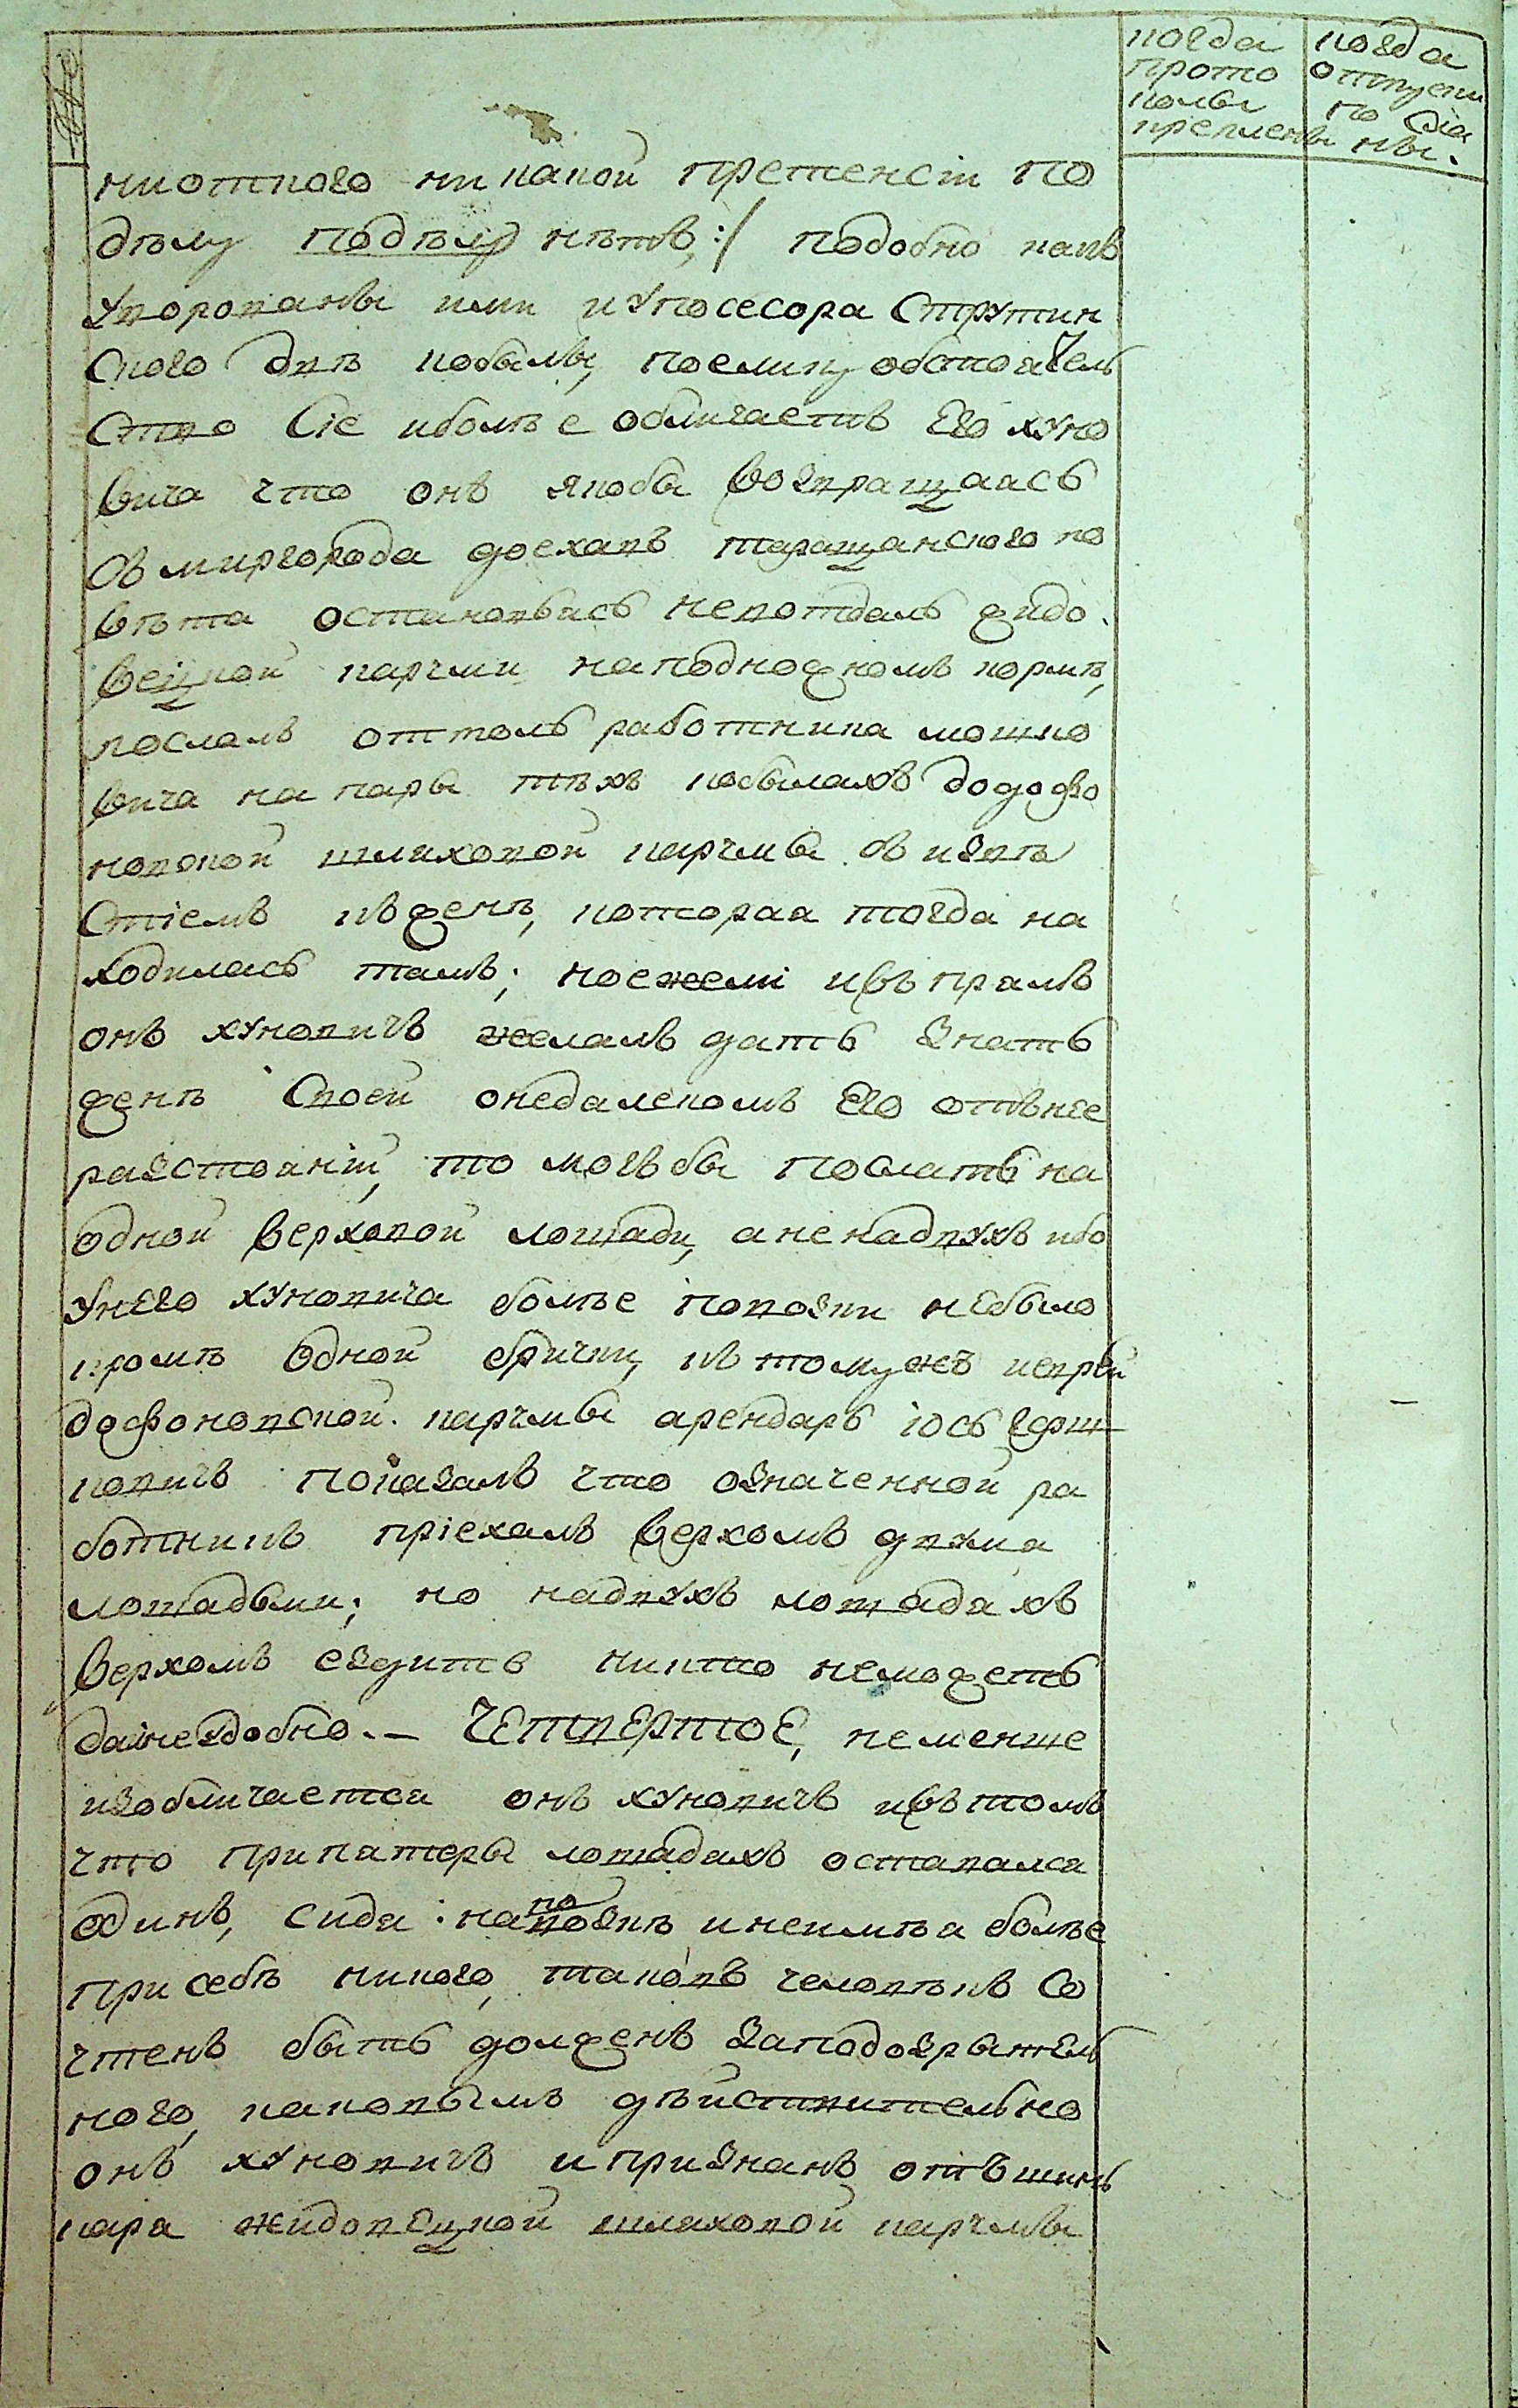 когда
прото
колы
креплены
когда
отпуски
по сла
ны.
ниоткого никакой претенсіи по
дѣлу подѣлу нѣтъ :/ подобно какъ
уворованы ими и упосесора Струтин
ского двѣ кобылы, поелику обстоятель
ство Сіе иболѣе обличаетъ Его хуно
вича что онъ якобы возвращаясь
съ миргорода доехавъ таращанского по
вѣта остановясь невотдаль жидо
вецкой карчми наподножномъ кормѣ,
послалъ оттоль работника мошко
вича на пары тѣхъ кобылахъ додофо
новской шляховой карчмы съ извѣ
стіемъ къ женѣ, котораа тогда на
ходилась тамъ; ноежели ивъ прамъ
онъ хуновичъ желалъ дать знать
женѣ Своей онедалекомъ Его отънее
разстояніи, то могъ бы послать на
одной верховой лошади, а не надвухъ ибо
Унего хуновича болѣе повозки небыло
кромѣ Одной брички, къ томужъ иеврей
дофоновской карчмы арендарь іось герш
ковичъ показалъ что означенной ра
ботникъ пріехалъ верхомъ двума
лошадьми; но надвухъ лошадахъ
верхомъ ездить никто неможетъ
даинеудобно. — Четвертое, неменше
изобличается онъ хуновичъ ивъ томъ
что при паторы лошадахъ оставался
одинъ, сида наповозкѣ и неимѣа болѣе
при себѣ никого, таковъ человѣкъ Со
чтенъ быть долженъ заподозрытель
ного, каковымъ дѣйствительно
онъ хуновичъ и признанъ отъ шин
кара жидовецкой шляховой карчмы